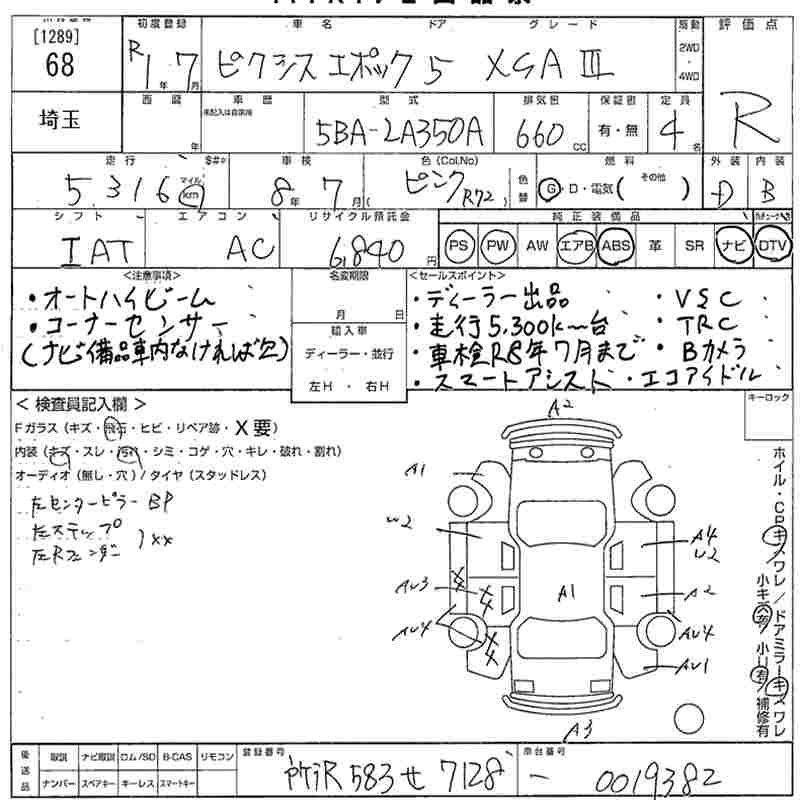 [1289]
68
初度登録
R 1年 7月
車名 ドア グレード
ピクシス エポック 5 XGA III
駆動
2WD
・
4WD
評価点
R
埼玉
西暦
年
車歴
未記入は自家用
型式
5BA-LA350A
排気量
660 CC
保証書
有・無
定員
4名
走行
5,316
マイル
km
$#*
車検
8年 7月
色(Col.No)
ピンク R72
色替
燃料
G・D・電気( その他 )
外装
D
内装
B
シフト
IAT
エアコン
AC
リサイクル預託金
6,840円
純正装備品
PS PW AW エアB ABS 革 SR ナビ DTV
<注意事項>
・オートハイビーム
・コーナーセンサー
(ナビ備品車内なければ欠)
名変期限
月 日
輸入車
ディーラー・並行
左H ・ 右H
<セールスポイント>
・ディーラー出品 ・VSC
・走行5,300k〜台 ・TRC
・車検R8年7月まで ・Bカメラ
・スマートアシスト ・エコアイドル
< 検査員記入欄 >
Fガラス(キズ・飛石・ヒビ・リペア跡・X要)
内装(キズ・スレ・汚れ・シミ・コゲ・穴・キレ・破れ・割れ)
オーディオ(無し・穴)/タイヤ(スタッドレス)
左センターピラーBP
左ステップ
左Rフェンダー )XX
キーロック
A2
A1
W2
AU3
AU4
A1
A4
U2
A2
AU4
AU1
A3
ホイル・CPキ・ワレ/ドアミラーキ・ワレ
小キズ有/小U有/補修有
後送品
取説 ナビ取説 ロム/SD B-CAS リモコン
ナンバー スペアキー キーレス スマートキー
登録番号
所沢 583 せ 7128
車台番号
- 0019382